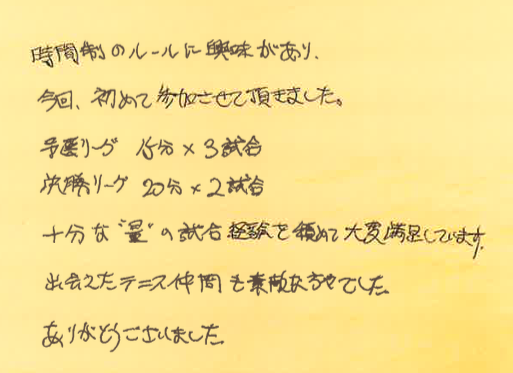 時間制のルールに興味があり、
今回、初めて参加させて頂きました。
予選リーグ 15分×3試合
決勝リーグ 20分×2試合
十分な"量"の試合経験を積めて大変満足しています。
出会えたテニス仲間も素敵な方々でした
ありがとうございました